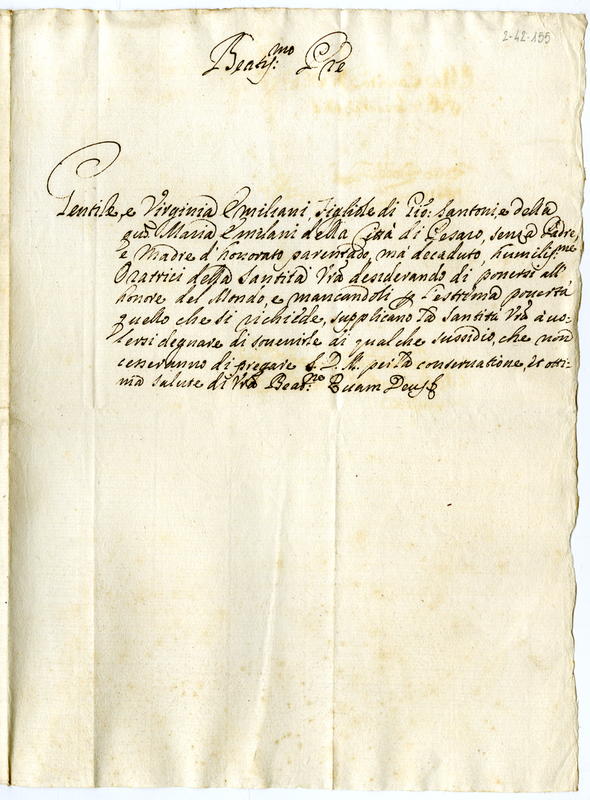 2-42-155
Beatis.mo Pre
Gentile, e Virginia Emiliani, figliole di Gio: Santoni, e della
qu. Maria Emiliani della Città di Pesaro, senza Padre,
e Madre d'honorato parentado, mà decaduto, humiliss.me
Oratrici della Santità Vra desiderando di ponersi all'
honore del Mondo, e mancandoli p l'estrema povertà
quello che si richiede, supplicano la Santità Vra à vo-
lersi degnare di sovenirle di qualche sussidio, che non
cesseranno di pregare S. D. M. per la conservatione, et otti-
ma salute di Vra Beat.ne Quam Deus